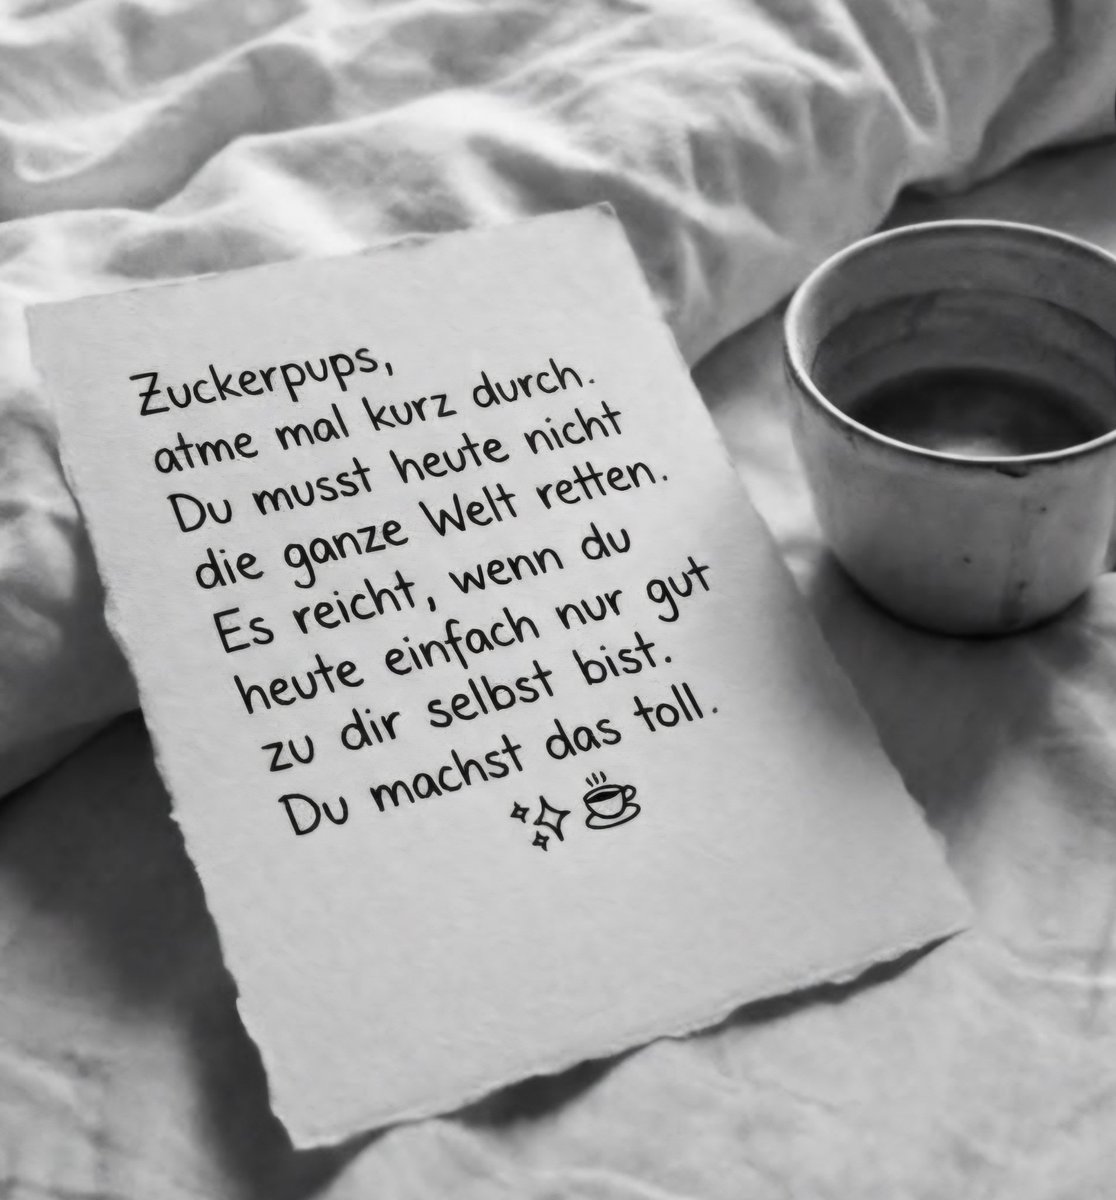 Zuckerpups,
atme mal kurz durch.
Du musst heute nicht
die ganze Welt retten.
Es reicht, wenn du
heute einfach nur gut
zu dir selbst bist.
Du machst das toll.